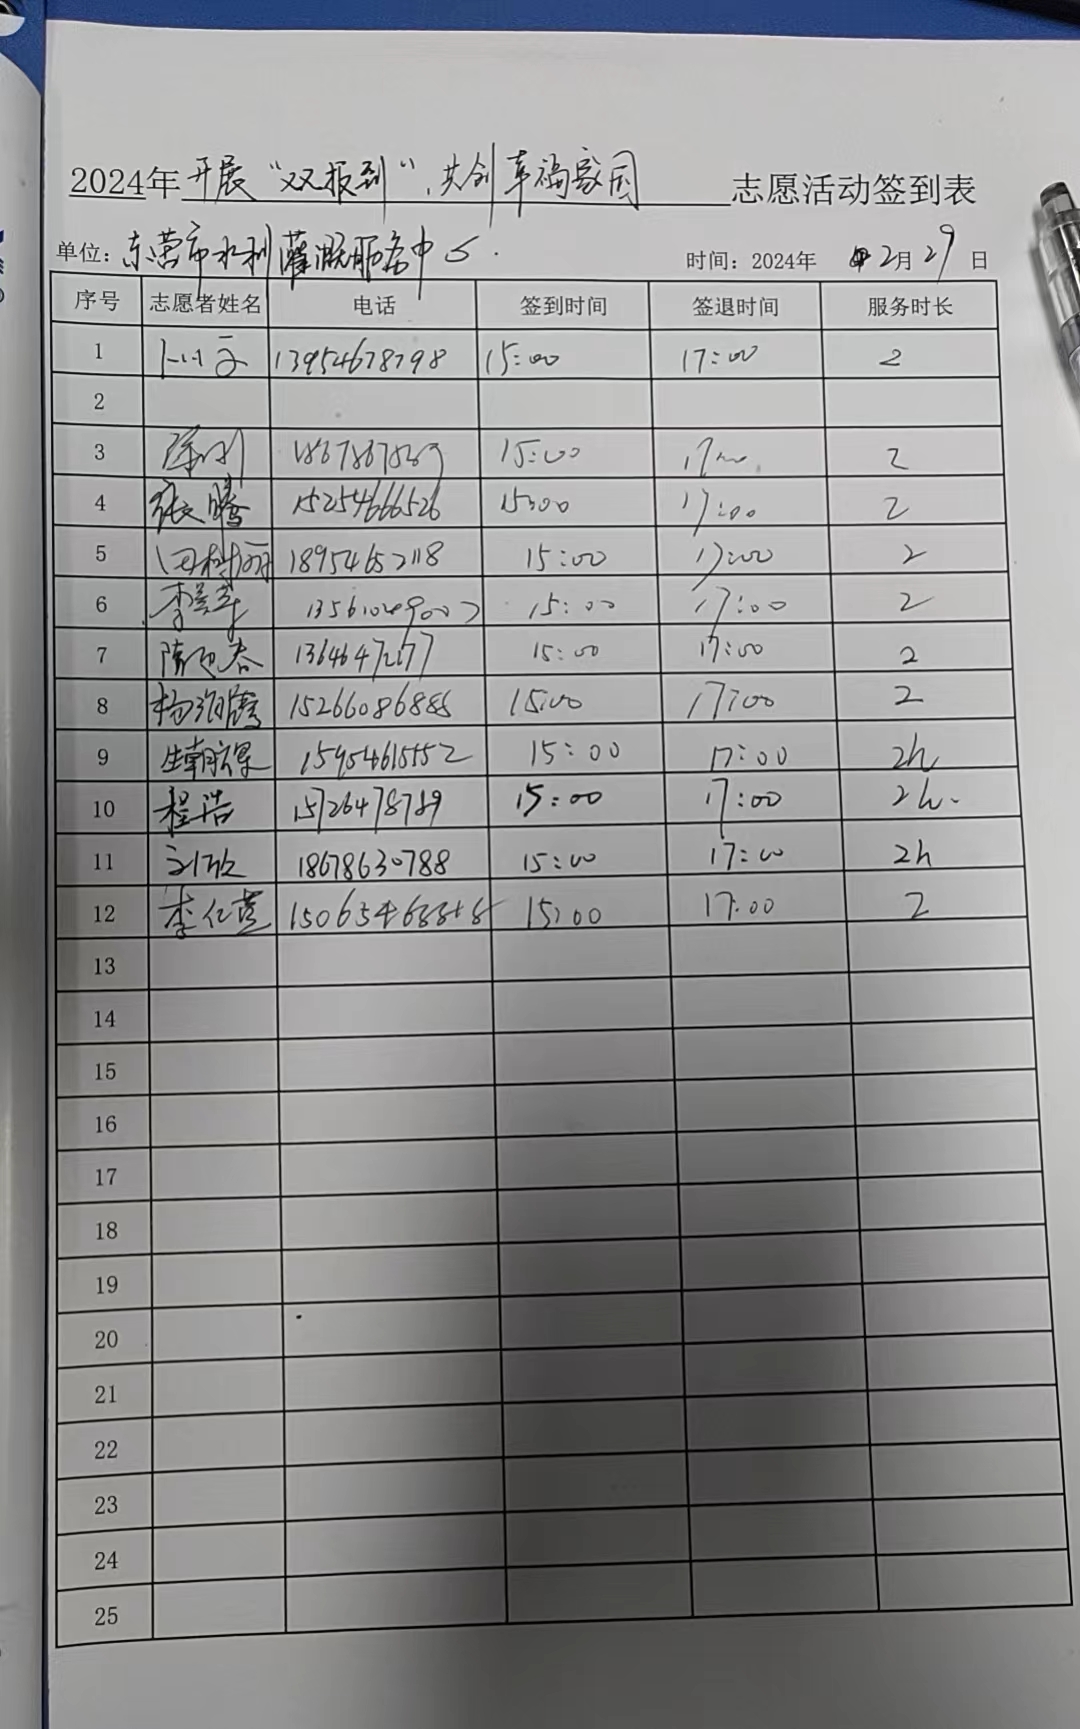 2024年 开展“双报到”,共创幸福家园 志愿活动签到表
单位: 东营市水利灌溉服务中心. 时间: 2024年 2月29日
序号 志愿者姓名 电话 签到时间 签退时间 服务时长
1 13954678798 15:00 17:00 2
2
3 15:00 2
4 张腾 15254666526 15:00 17:00 2
5 田树丽 18954652118 15:00 17:00 2
6 15:00 17:00 2
7 隋迎春 15:00 17:00 2
8 15266086885 15:00 17:00 2
9 15954615552 15:00 17:00 2h
10 程浩 15726478789 15:00 17:00 2h.
11 刘欣 18678630788 15:00 17:00 2h
12 15:00 17:00 2
13
14
15
16
17
18
19
20
21
22
23
24
25